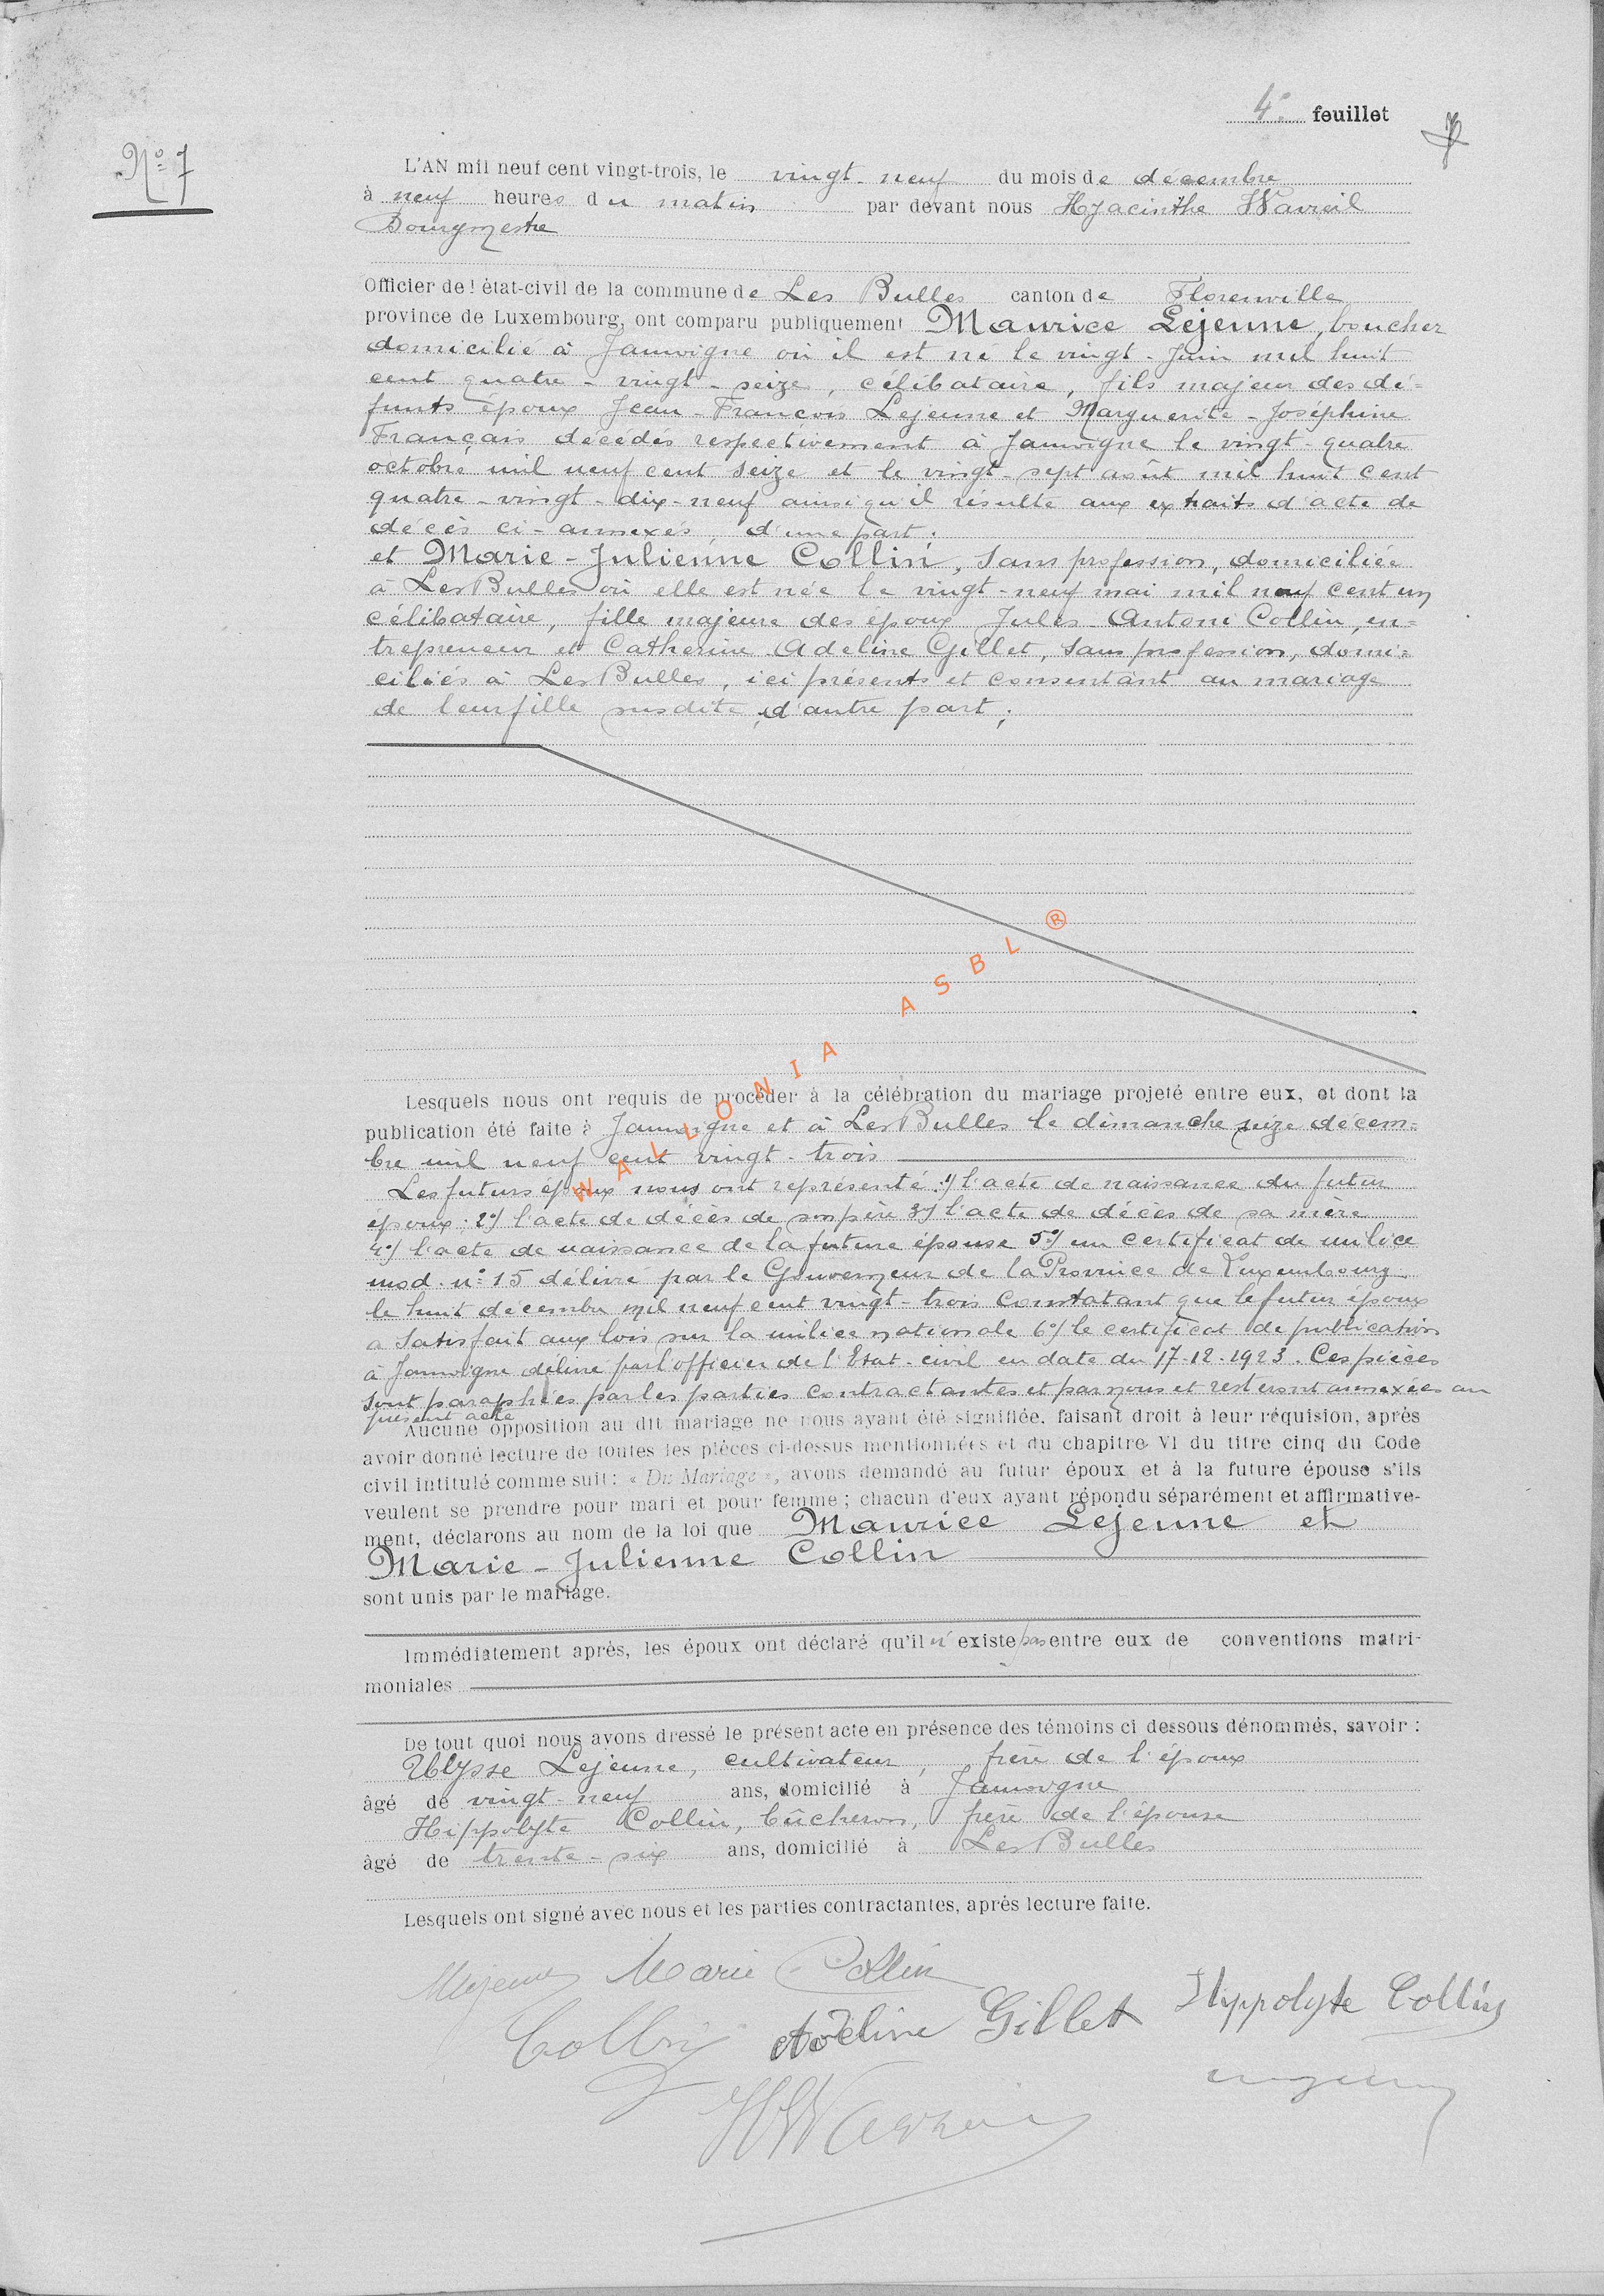 4e feuillet
No 7
L'AN mil neuf cent vingt-trois, le vingt-neuf du mois de décembre
à neuf heures du matin par devant nous Hyacinthe Wavreil
Bourgmestre
Officier de l'état-civil de la commune de Les Bulles canton de Florenville
province de Luxembourg, ont comparu publiquement Maurice Lejeune, boucher
domicilié à Jamoigne où il est né le vingt-Juin mil huit
cent quatre-vingt-seize, célibataire, fils majeur des dé=
funts époux Jean-François Lejeune et Marguerite-Joséphine
Français décédés respectivement à Jamoigne le vingt-quatre
octobre mil neuf cent seize et le vingt-sept août mil huit cent
quatre-vingt-dix-neuf ainsi qu'il résulte aux extraits d'acte de
décès ci-annexés, d'une part;
et Marie-Julienne Collin, sans profession, domiciliée
à Les Bulles où elle est née le vingt-neuf mai mil neuf cent un
célibataire, fille majeure des époux Jules-Antoni Collin, en=
trepreneur et Catherine Adeline Gillet, sans profession, domi=
ciliés à Les Bulles, ici présents et consentant au mariage
de leur fille susdite, d'autre part;
WALLONIA ASBL ®
Lesquels nous ont requis de procéder à la célébration du mariage projeté entre eux, et dont la
publication été faite à Jamoigne et à Les Bulles le dimanche seize décem=
bre mil neuf cent vingt-trois
Les futurs époux nous ont représenté: 1°/ l'acte de naissance du futur
époux: 2°/ l'acte de décès de son père 3°/ l'acte de décès de sa mère
4°/ l'acte de naissance de la future épouse 5°/ un certificat de milice
mod. n° 15 délivré par le Gouverneur de la Province de Luxembourg
le huit décembre mil neuf cent vingt-trois constatant que le futur époux
a satisfait aux lois sur la milice nationale 6°/ le certificat de publication
à Jamoigne délivré par l'officier de l'Etat-civil en date du 17-12-1923. Ces pièces
sont paraphées par les parties contractantes et par nous et resteront annexées au
présent acte
Aucune opposition au dit mariage ne nous ayant été signifiée, faisant droit à leur réquision, après
avoir donné lecture de toutes les pièces ci-dessus mentionnées et du chapitre VI du titre cinq du Code
civil intitulé comme suit: « Du Mariage », avons demandé au futur époux et à la future épouse s'ils
veulent se prendre pour mari et pour femme; chacun d'eux ayant répondu séparément et affirmative-
ment, déclarons au nom de la loi que Maurice Lejeune et
Marie-Julienne Collin
sont unis par le mariage.
Immédiatement après, les époux ont déclaré qu'il n'existe pas entre eux de conventions matri-
moniales
De tout quoi nous avons dressé le présent acte en présence des témoins ci dessous dénommés, savoir:
Ulysse Lejeune, cultivateur, frère de l'époux
âgé de vingt-neuf ans, domicilié à Jamoigne
Hippolyte Collin, bûcheron, frère de l'épouse
âgé de trente-six ans, domicilié à Les Bulles
Lesquels ont signé avec nous et les parties contractantes, après lecture faite.
MLejeune Marie Collin
Collin Adeline Gillet Hyppolyte Collin
HWavreil